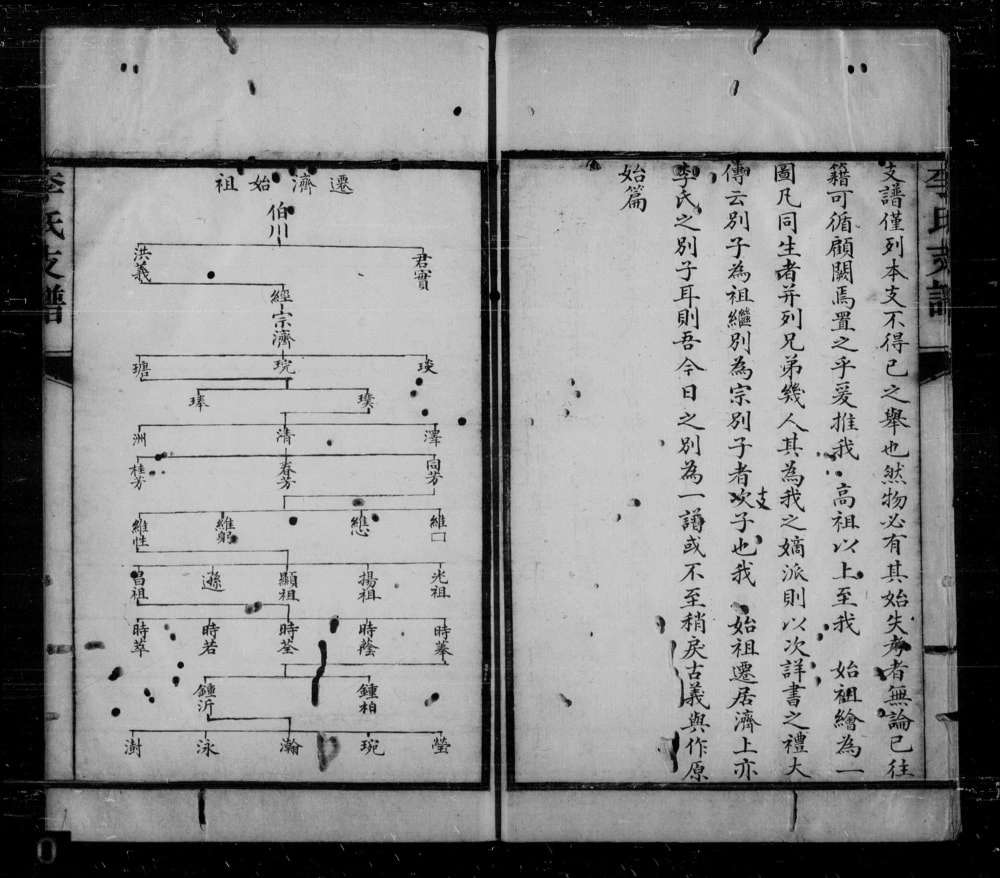 支譜僅列本支不得已之舉也然物必有其始失考者無論已往
籍可循顧闕焉置之乎爰推我 高祖以上至我 始祖繪為一
圖凡同生者并列兄弟幾人其為我之嫡派則以次詳書之禮大
傳云別子為祖繼別為宗別子者次子也我 始祖遷居濟上亦
支
李氏之別子耳則吾今日之別為一譜或不至稍戾古義與作原
始篇
李氏支譜
遷濟始祖
伯川
君實 洪義
經
宗濟
琰 琓 瑭
璞 琫
澤 清 洲
同芳 春芳 桂芳
維口 維心 維躬 維性
光祖 揚祖 顯祖 遜 昌祖
時蓁 時蔭 時荃 時若 時萃
鍾柏 鍾沂
瑩 琬 瀚 泳 澍
李氏支譜